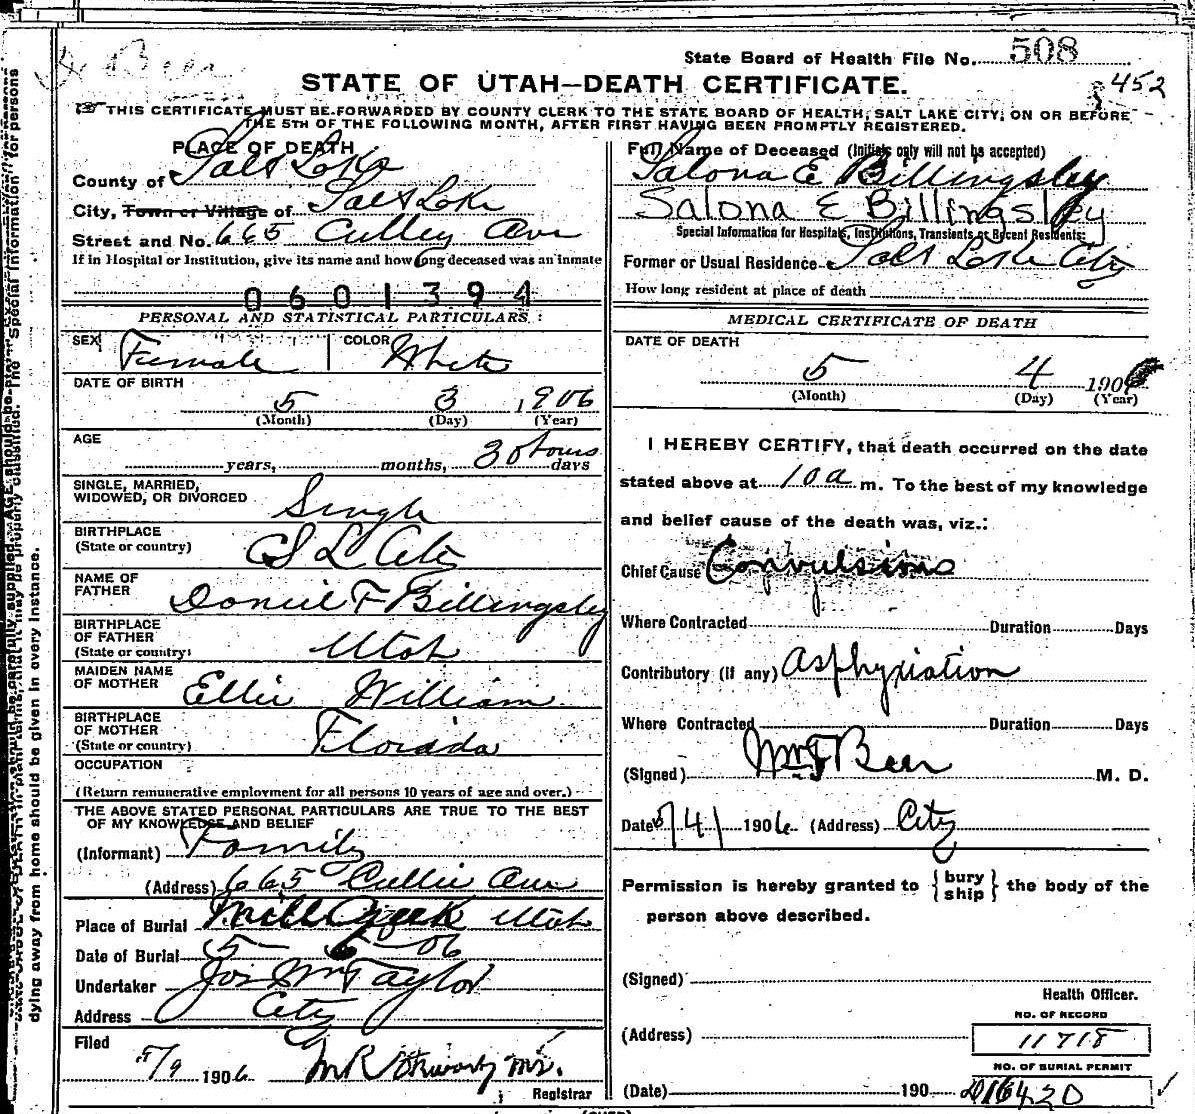 Dr Beer
State Board of Health File No. 508
STATE OF UTAH—DEATH CERTIFICATE.
452
THIS CERTIFICATE MUST BE FORWARDED BY COUNTY CLERK TO THE STATE BOARD OF HEALTH, SALT LAKE CITY, ON OR BEFORE
THE 5TH OF THE FOLLOWING MONTH, AFTER FIRST HAVING BEEN PROMPTLY REGISTERED.
PLACE OF DEATH
County of Salt Lake
City, Town or Village of Salt Lake
Street and No. 665 Culley Ave
If in Hospital or Institution, give its name and how long deceased was an inmate
0601394
PERSONAL AND STATISTICAL PARTICULARS:
SEX Female COLOR White
DATE OF BIRTH
5 3 1906
(Month) (Day) (Year)
AGE
years, months, 30 hours days
SINGLE, MARRIED,
WIDOWED, OR DIVORCED Single
BIRTHPLACE
(State or country) S L City
NAME OF
FATHER Daniel F Billingsley
BIRTHPLACE
OF FATHER
(State or country) Utah
MAIDEN NAME
OF MOTHER Ellie William
BIRTHPLACE
OF MOTHER
(State or country) Florida
OCCUPATION
(Return remunerative employment for all persons 10 years of age and over.)
THE ABOVE STATED PERSONAL PARTICULARS ARE TRUE TO THE BEST
OF MY KNOWLEDGE AND BELIEF
(Informant) Family
(Address) 665 Cullie Ave
Place of Burial Mill Creek Utah
Date of Burial 5 - 6 - 06
Undertaker Jos Wm Taylor
Address City
Filed
5/9 1906
Registrar
Full Name of Deceased (Initials only will not be accepted)
Salona E Billingsley
Salona E Billingsley
Special Information for Hospitals, Institutions, Transients or Recent Residents:
Former or Usual Residence Salt Lake City
How long resident at place of death
MEDICAL CERTIFICATE OF DEATH
DATE OF DEATH
5 4 1906
(Month) (Day) (Year)
I HEREBY CERTIFY, that death occurred on the date
stated above at 10 a m. To the best of my knowledge
and belief cause of the death was, viz.:
Chief Cause Convulsions
Where Contracted Duration Days
Contributory (if any) Asphyxiation
Where Contracted Duration Days
(Signed) Wm F Beer M. D.
Date 5/4/ 1906 (Address) City
Permission is hereby granted to { bury ship } the body of the
person above described.
(Signed)
Health Officer.
NO. OF RECORD
(Address) 11718
NO. OF BURIAL PERMIT
(Date) 190 16420
dying away from home should be given in every instance.